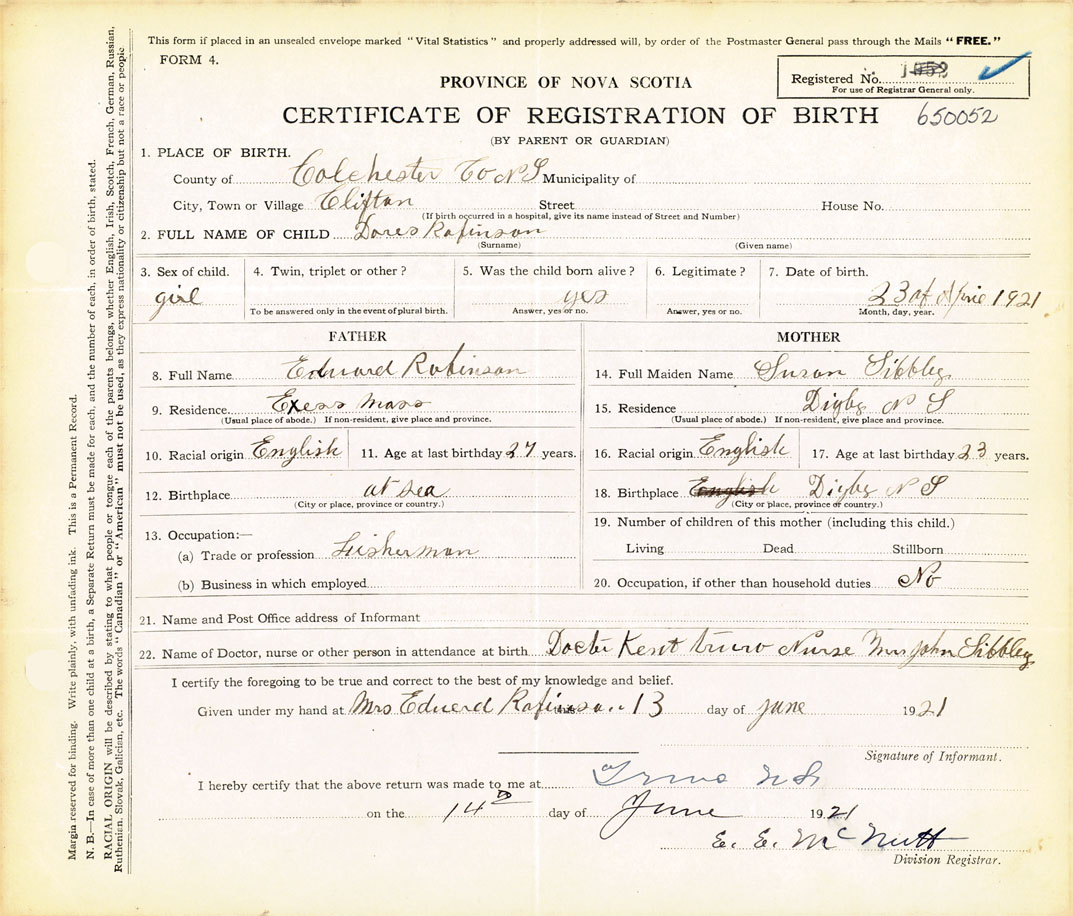 This form if placed in an unsealed envelope marked "Vital Statistics" and properly addressed will, by order of the Postmaster General pass through the Mails "FREE."
FORM 4.
Registered No. 1052
For use of Registrar General only.
PROVINCE OF NOVA SCOTIA
CERTIFICATE OF REGISTRATION OF BIRTH 650052
(BY PARENT OR GUARDIAN)
1. PLACE OF BIRTH.
County of Colchester Co N S Municipality of
City, Town or Village Clifton Street House No.
(If birth occurred in a hospital, give its name instead of Street and Number)
2. FULL NAME OF CHILD Dores Robinson
(Surname) (Given name)
3. Sex of child. 4. Twin, triplet or other? 5. Was the child born alive? 6. Legitimate? 7. Date of birth.
girl yes 23 of 1921
To be answered only in the event of plural birth. Answer, yes or no. Answer, yes or no. Month, day, year.
FATHER
8. Full Name Edward Robinson
9. Residence. Exess Mass
(Usual place of abode.) If non-resident, give place and province.
10. Racial origin English 11. Age at last birthday 27 years.
12. Birthplace at sea
(City or place, province or country.)
13. Occupation:—
(a) Trade or profession Fisherman
(b) Business in which employed
MOTHER
14. Full Maiden Name Susan Sibbley
15. Residence Digby N S
(Usual place of abode.) If non-resident, give place and province.
16. Racial origin English 17. Age at last birthday 23 years.
18. Birthplace English Digby N S
(City or place, province or country.)
19. Number of children of this mother (including this child.)
Living Dead Stillborn
20. Occupation, if other than household duties No
21. Name and Post Office address of Informant
22. Name of Doctor, nurse or other person in attendance at birth Docter Kent truro Nurse Mrs John Sibbley
I certify the foregoing to be true and correct to the best of my knowledge and belief.
Given under my hand at Mrs Eduerd Robinson this 13 day of June 1921
Signature of Informant.
I hereby certify that the above return was made to me at Truro N S
on the 14th day of June 1921
E. E. McNutt
Division Registrar.
Margin reserved for binding. Write plainly, with unfading ink. This is a Permanent Record.
N. B.—In case of more than one child at a birth, a Separate Return must be made for each, and the number of each, in order of birth, stated.
RACIAL ORIGIN will be described by stating to what people or tongue each of the parents belongs, whether English, Irish, Scotch, French, German, Russian,
Ruthenian, Slovak, Galician, etc. The words "Canadian" or "American" must not be used, as they express nationality or citizenship but not a race or people